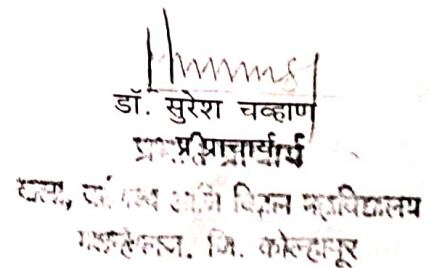 डॉ. सुरेश चव्हाण
प्राचार्य
कला, वाणिज्य आणि विज्ञान महाविद्यालय
जि. कोल्हापूर